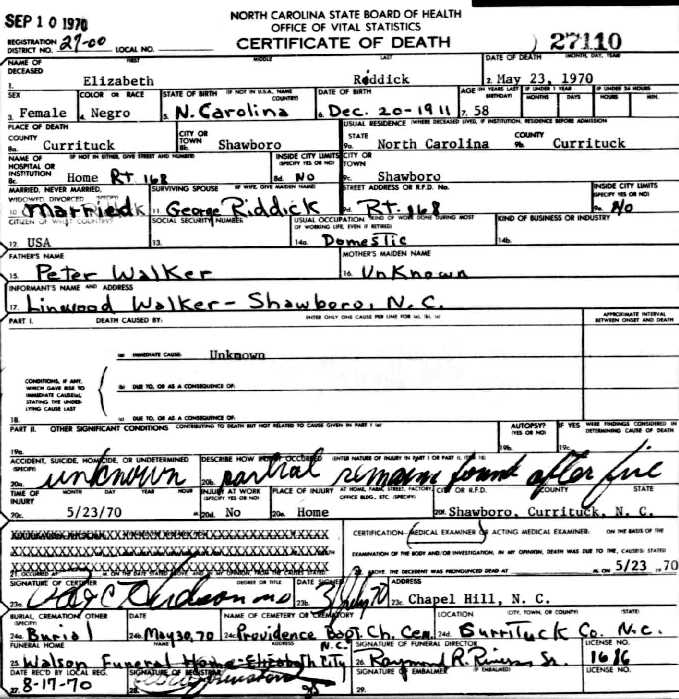 SEP 10 1970
NORTH CAROLINA STATE BOARD OF HEALTH
OFFICE OF VITAL STATISTICS
CERTIFICATE OF DEATH
27110
REGISTRATION DISTRICT NO. 27-00 LOCAL NO.
NAME OF DECEASED FIRST MIDDLE LAST DATE OF DEATH (MONTH, DAY, YEAR)
1. Elizabeth Reddick 2. May 23, 1970
SEX COLOR OR RACE STATE OF BIRTH (IF NOT IN U.S.A., NAME COUNTRY) DATE OF BIRTH AGE (IN YEARS LAST BIRTHDAY) IF UNDER 1 YEAR MONTHS DAYS IF UNDER 24 HOURS HOURS MIN.
3. Female 4. Negro 5. N. Carolina 6. Dec. 20-1911 7. 58
PLACE OF DEATH USUAL RESIDENCE (WHERE DECEASED LIVED, IF INSTITUTION, RESIDENCE BEFORE ADMISSION
COUNTY CITY OR TOWN STATE COUNTY
8a. Currituck 8b. Shawboro 9a. North Carolina 9b. Currituck
NAME OF HOSPITAL OR INSTITUTION (IF NOT IN EITHER, GIVE STREET AND NUMBER) INSIDE CITY LIMITS (SPECIFY YES OR NO) CITY OR TOWN
8c. Home Rt. 168 8d. No 9c. Shawboro
MARRIED, NEVER MARRIED, WIDOWED DIVORCED SURVIVING SPOUSE (IF WIFE, GIVE MAIDEN NAME) STREET ADDRESS OR R.F.D. No. INSIDE CITY LIMITS (SPECIFY YES OR NO)
10. Married 11. George Riddick 9d. Rt. 168 9e. No
CITIZEN OF WHAT COUNTRY? SOCIAL SECURITY NUMBER USUAL OCCUPATION (KIND OF WORK DONE DURING MOST OF WORKING LIFE, EVEN IF RETIRED) KIND OF BUSINESS OR INDUSTRY
12. USA 13. 14a. Domestic 14b.
FATHER'S NAME MOTHER'S MAIDEN NAME
15. Peter Walker 16. Unknown
INFORMANT'S NAME AND ADDRESS
17. Linwood Walker - Shawboro, N.C.
PART I. DEATH CAUSED BY: ENTER ONLY ONE CAUSE PER LINE FOR (a), (b), (c) APPROXIMATE INTERVAL BETWEEN ONSET AND DEATH
(a) IMMEDIATE CAUSE: Unknown
CONDITIONS, IF ANY, WHICH GAVE RISE TO IMMEDIATE CAUSE(a), STATING THE UNDERLYING CAUSE LAST
(b) DUE TO, OR AS A CONSEQUENCE OF:
18. (c) DUE TO, OR AS A CONSEQUENCE OF:
PART II. OTHER SIGNIFICANT CONDITIONS CONTRIBUTING TO DEATH BUT NOT RELATED TO CAUSE GIVEN IN PART I (a) AUTOPSY? (YES OR NO) IF YES WERE FINDINGS CONSIDERED IN DETERMINING CAUSE OF DEATH
19a. 19b. 19c.
ACCIDENT, SUICIDE, HOMICIDE, OR UNDETERMINED (SPECIFY) DESCRIBE HOW INJURY OCCURRED (ENTER NATURE OF INJURY IN PART I OR PART II, ITEM 18)
20a. unknown 20b. partial remains found after fire
TIME OF INJURY MONTH DAY YEAR HOUR INJURY AT WORK (SPECIFY YES OR NO) PLACE OF INJURY AT HOME, FARM, STREET, FACTORY, OFFICE BLDG., ETC. (SPECIFY) CITY OR R.F.D. COUNTY STATE
20c. 5/23/70 M 20d. No 20e. Home 20f. Shawboro, Currituck, N. C.
CERTIFICATION—MEDICAL EXAMINER OR ACTING MEDICAL EXAMINER: ON THE BASIS OF THE
EXAMINATION OF THE BODY AND/OR INVESTIGATION, IN MY OPINION, DEATH WAS DUE TO THE, CAUSE(S) STATED
ABOVE. THE DECEDENT WAS PRONOUNCED DEAD AT M. ON 5/23 1970
SIGNATURE OF CERTIFIER DEGREE OR TITLE DATE SIGNED ADDRESS
23a. 23b. 23c. Chapel Hill, N. C.
BURIAL, CREMATION, OTHER (SPECIFY) DATE NAME OF CEMETERY OR CREMATORY LOCATION (CITY, TOWN, OR COUNTY) (STATE)
24a. Burial 24b. May 30, 70 24c. Providence Bapt. Ch. Cem. 24d. Currituck Co. N.C.
FUNERAL HOME NAME ADDRESS SIGNATURE OF FUNERAL DIRECTOR LICENSE NO.
25. Walson Funeral Home - Elizabeth City N.C. 26. Raymond R. Rivers Sr. 1616
DATE REC'D BY LOCAL REG. SIGNATURE OF REGISTRAR SIGNATURE OF EMBALMER (IF EMBALMED) LICENSE NO.
27. 8-17-70 28. 29.